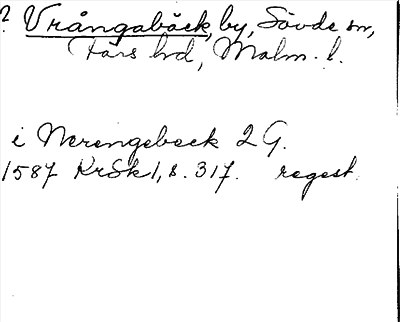 ? Vrångabäck, by, Sövde sn,
Färs hd, Malm. l.
i Nerengebeck 2 G.
1587 KrSk1, s. 317. regest.